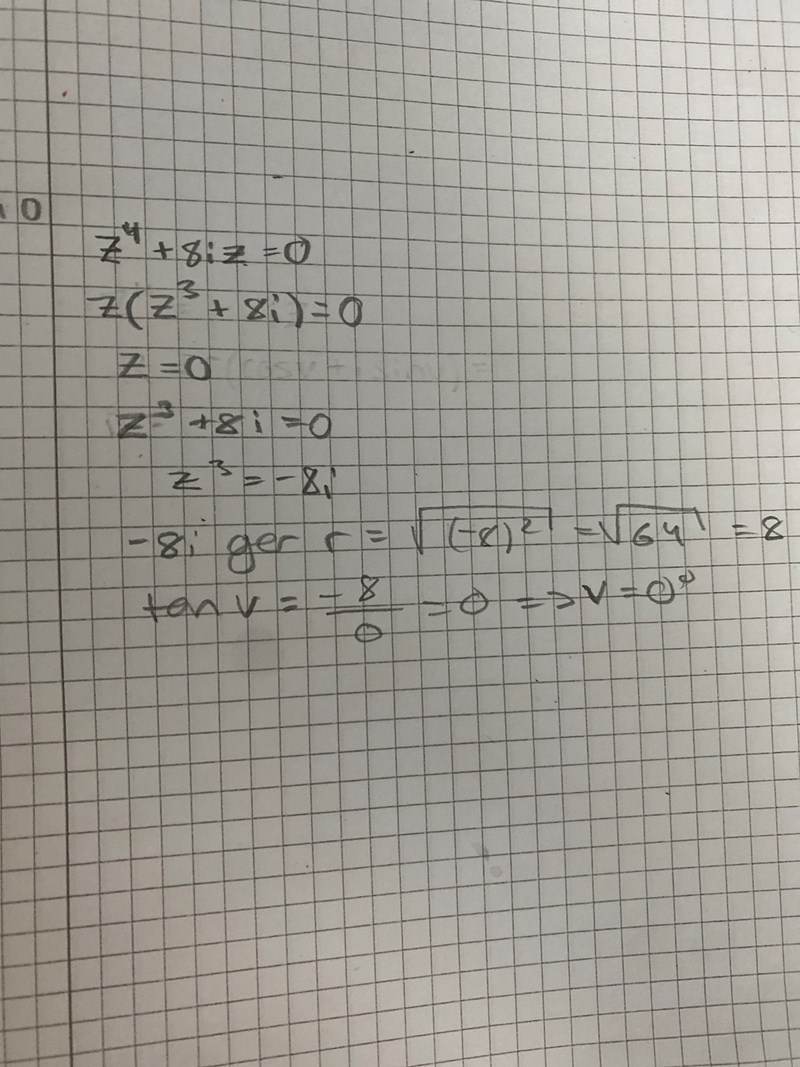 10
z⁴ + 8iz = 0
z(z³ + 8i) = 0
z = 0
z³ + 8i = 0
z³ = -8i
-8i ger r = √(-8)² = √64 = 8
tan v = -8/0 = 0 => v = 0°